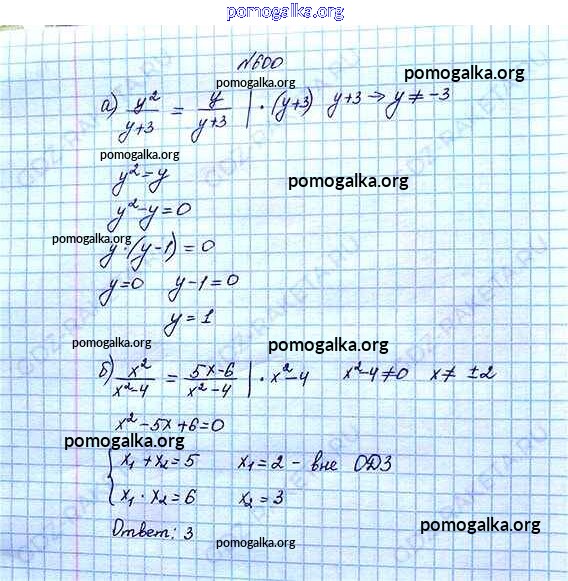 pomogalka.org
№600
pomogalka.org
pomogalka.org
а) y²/(y+3) = y/(y+3) | · (y+3) y+3 → y ≠ -3
pomogalka.org
y² = y
pomogalka.org
y² - y = 0
pomogalka.org
y · (y - 1) = 0
y = 0 y - 1 = 0
y = 1
pomogalka.org
pomogalka.org
б) x²/(x²-4) = (5x-6)/(x²-4) | · x²-4 x²-4 ≠ 0 x ≠ ±2
x² - 5x + 6 = 0
pomogalka.org
{ x₁ + x₂ = 5 x₁ = 2 - вне ОДЗ
x₁ · x₂ = 6 x₂ = 3
Ответ: 3
pomogalka.org
pomogalka.org
GDZ-RAKETA.RU